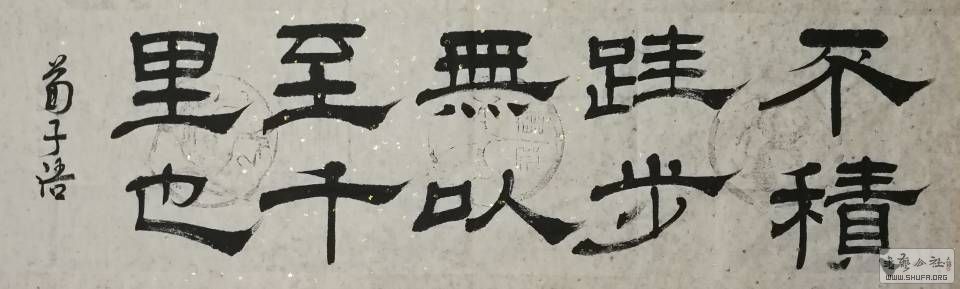 不積
跬步
無以
至千
里也
荀子語
WWW.SHUFA.ORG